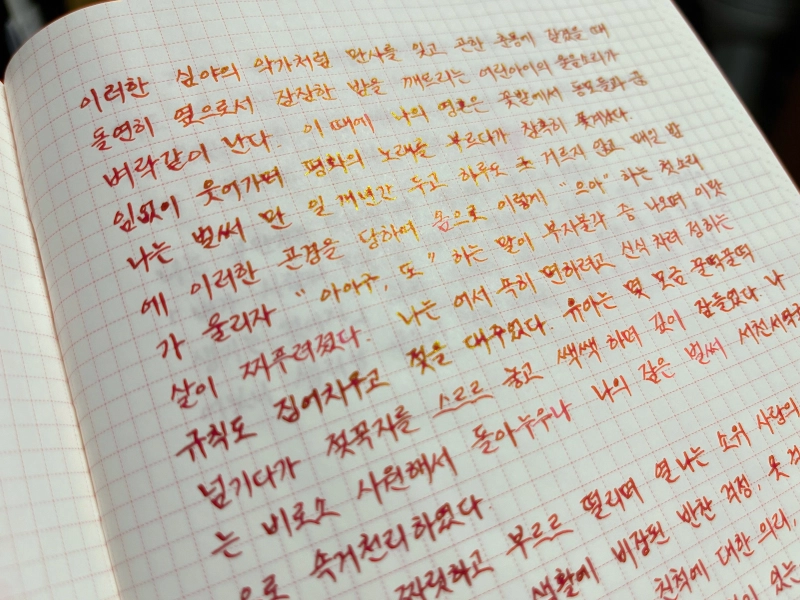 이러한 심야의 악가처럼 만사를 잊고 곤한 춘몽에 잠겼을 때
돌연히 옆으로서 잠잠한 밤을 깨뜨리는 어린아이의 울음소리가
벼락같이 난다. 이 때에 나의 영혼은 꽃밭에서 동무들과 끊
임없이 웃어가며 평화의 노래를 부르다가 참혹히 쫓겨났다.
나는 벌써 만 일개년간 두고 하루도 안 거르지 않고 매일 밤
에 이러한 곤경을 당하여 옴으로 이렇게 "으아" 하는 첫소리
가 울리자 "아이구, 또" 하는 말이 부지불각 중 나오며 이맛
살이 찌푸려졌다. 나는 어서 속히 면하려고 신식 차려 정하는
규칙도 집어치우고 젖을 대주었다. 유아는 몇 모금 꿀떡꿀떡
넘기다가 젖꼭지를 스르르 놓고 쌕쌕 하며 깊이 잠들었다. 나
는 비로소 시원해서 돌아누우나 나의 잠은 벌써 서천서역국
으로 속거천리하였다.
찌릿하고 부르르 떨리며 열나는 소위 사람의
생활에 비장된 반찬 걱정, 옷
친척에 대한 의리,
있는